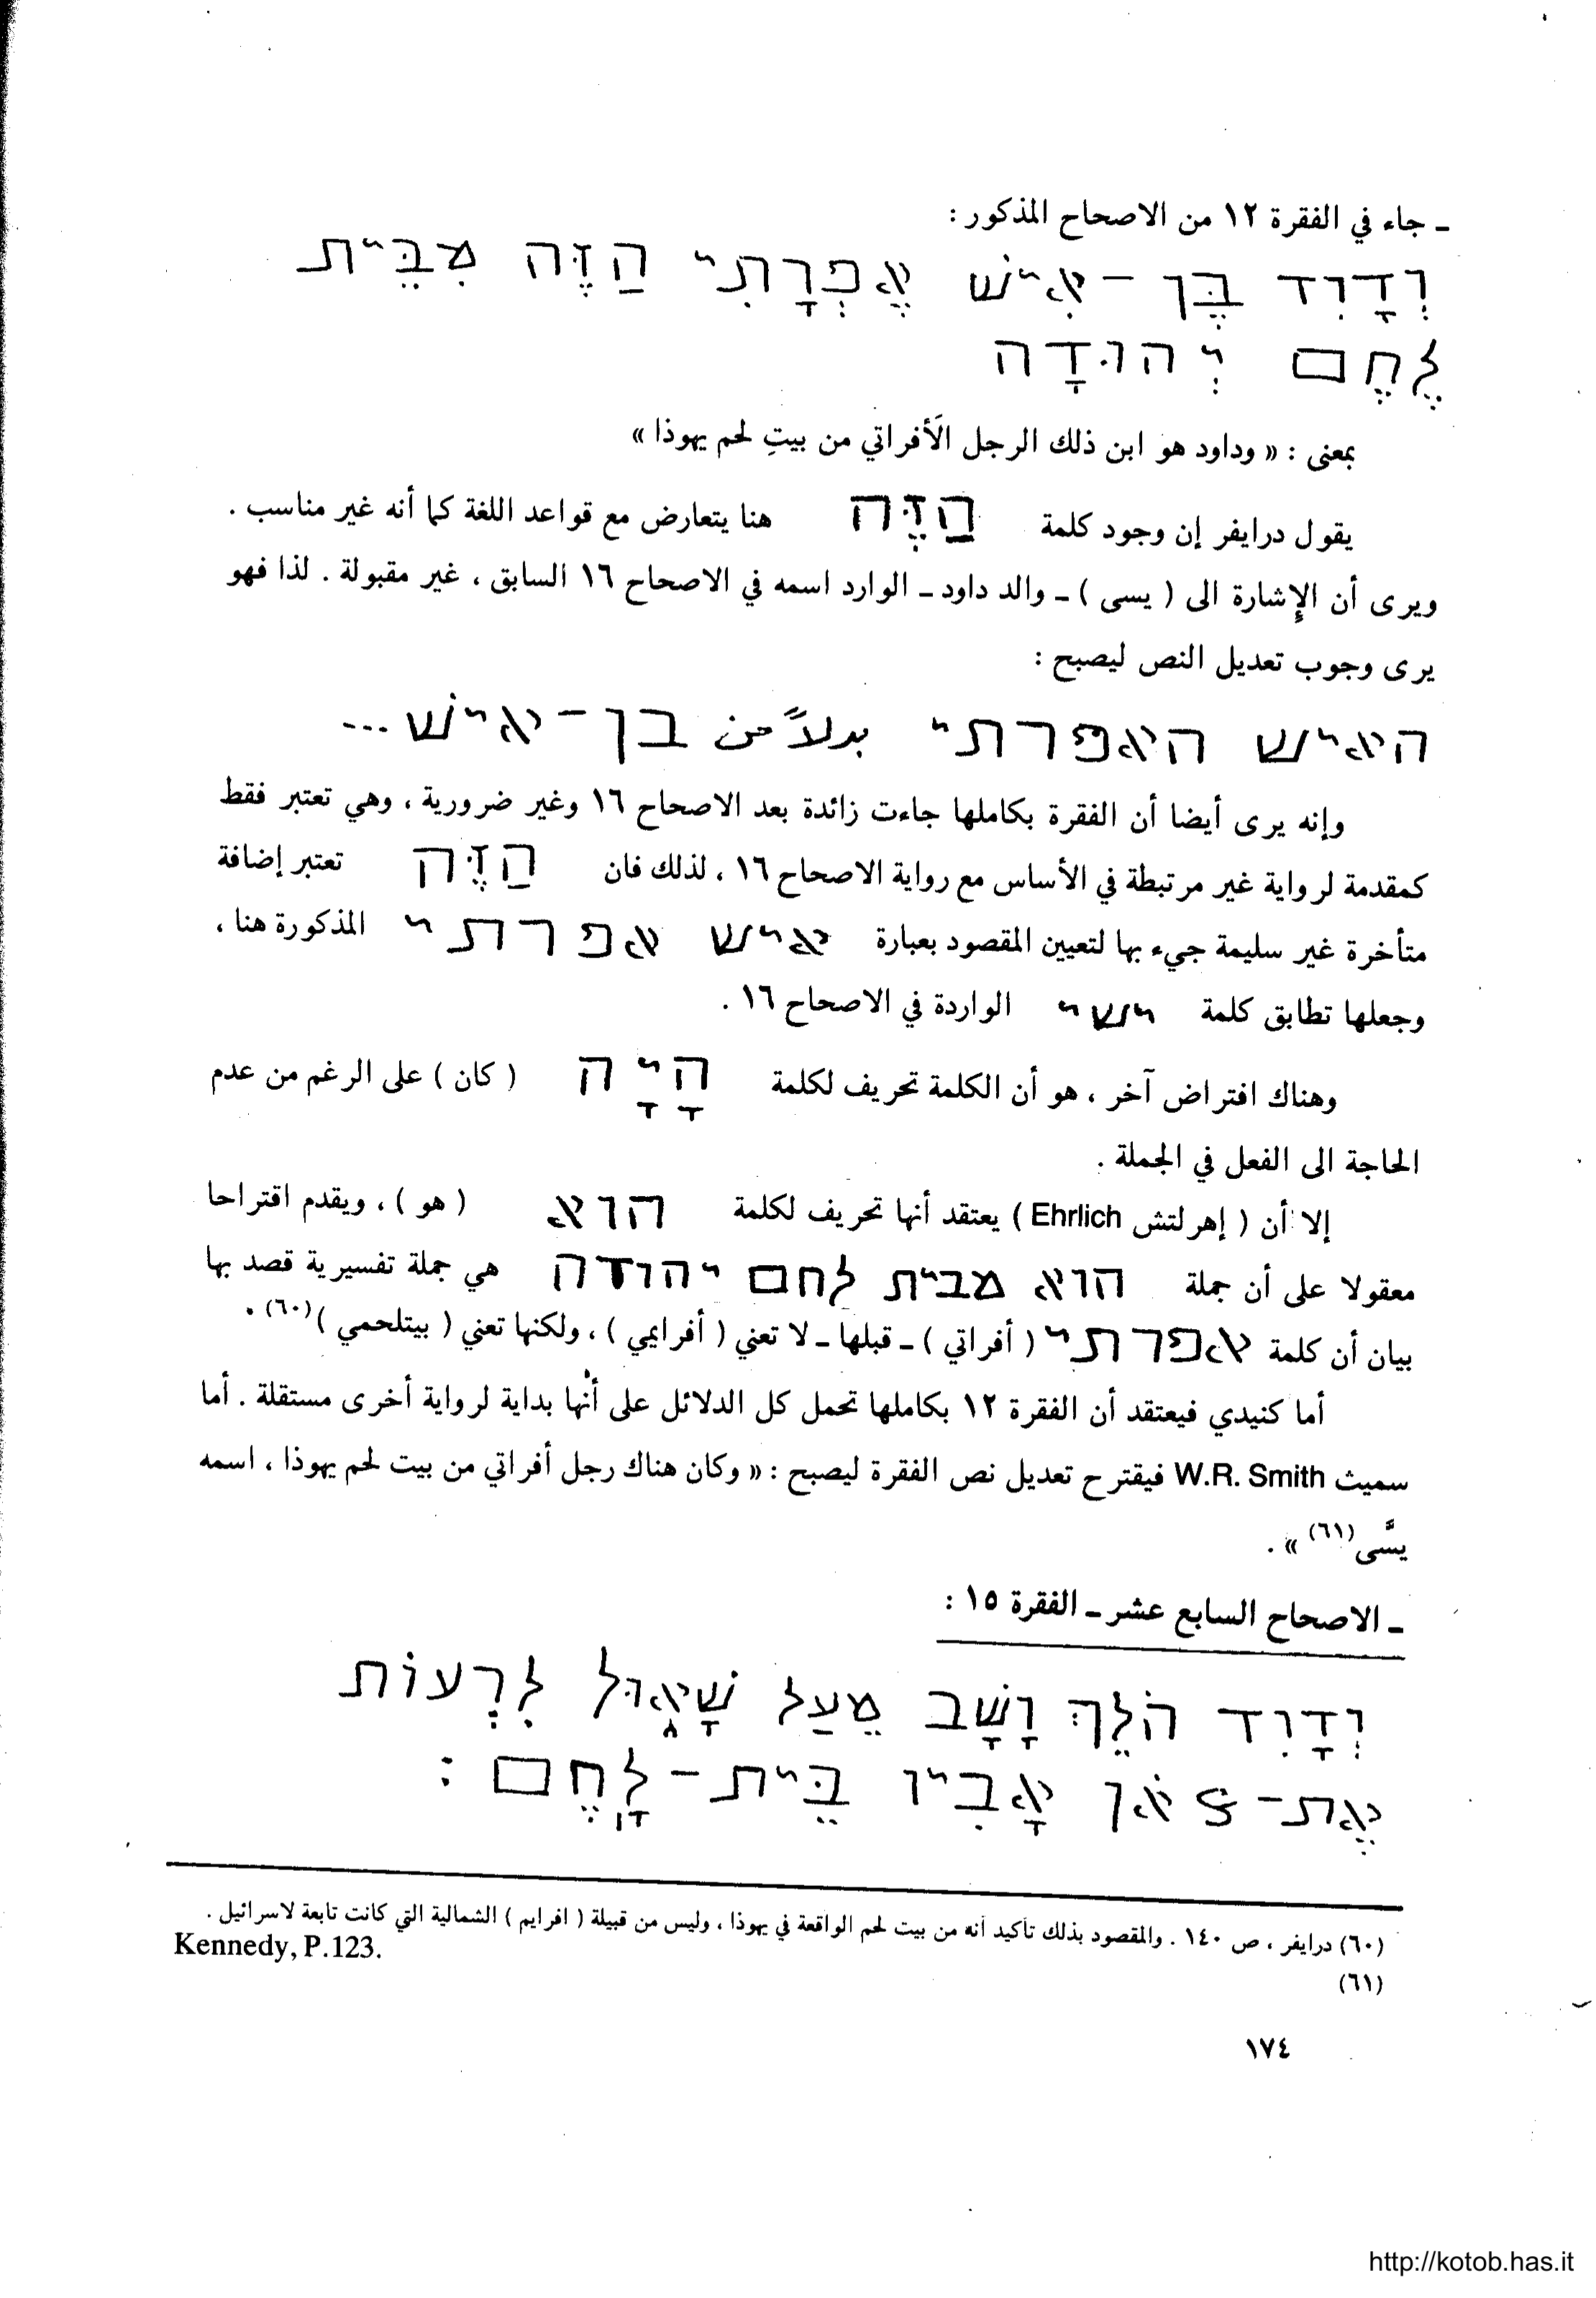 ـ جاء في الفقرة ١٢ من الاصحاح المذكور :
וְדָוִד בֶּן־אִישׁ אֶפְרָתִי הַזֶּה מִבֵּית
לֶחֶם יְהוּדָה
بمعنى : « وداود هو ابن ذلك الرجل الأفراتي من بيتِ لحم يهوذا »
يقول درايفر إن وجود كلمة הַזֶּה هنا يتعارض مع قواعد اللغة كما أنه غير مناسب .
ويرى أن الإِشارة الى ( يسى ) ـ والد داود ـ الوارد اسمه في الاصحاح ١٦ السابق ، غير مقبولة . لذا فهو
يرى وجوب تعديل النص ليصبح :
האיש האפרתי بدلاً من בן־איש ...
وإنه يرى أيضا أن الفقرة بكاملها جاءت زائدة بعد الاصحاح ١٦ وغير ضرورية ، وهي تعتبر فقط
كمقدمة لرواية غير مرتبطة في الأساس مع رواية الاصحاح ١٦ ، لذلك فان הַזֶּה تعتبر إضافة
متأخرة غير سليمة جيء بها لتعيين المقصود بعبارة איש אפרתי المذكورة هنا ،
وجعلها تطابق كلمة ישי الواردة في الاصحاح ١٦ .
وهناك افتراض آخر ، هو أن الكلمة تحريف لكلمة הָיָה ( كان ) على الرغم من عدم
الحاجة الى الفعل في الجملة .
إلا أن ( إهرلتش Ehrlich ) يعتقد أنها تحريف لكلمة הוא ( هو ) ، ويقدم اقتراحا
معقولا على أن جملة הוא מבית לחם יהודה هي جملة تفسيرية قصد بها
بيان أن كلمة אפרתי ( أفراتي ) ـ قبلها ـ لا تعني ( أفرايمي ) ، ولكنها تعني ( بيتلحمي )(٦٠) .
أما كنيدي فيعتقد أن الفقرة ١٢ بكاملها تحمل كل الدلائل على أنها بداية لرواية أخرى مستقلة . أما
سميث W.R. Smith فيقترح تعديل نص الفقرة ليصبح : « وكان هناك رجل أفراتي من بيت لحم يهوذا ، اسمه
يسَّى(٦١) » .
ـ الاصحاح السابع عشر ـ الفقرة ١٥ :
וְדָוִד הֹלֵךְ וָשָׁב מֵעַל שָׁאוּל לִרְעוֹת
אֶת־צֹאן אָבִיו בֵּית־לָחֶם :
(٦٠) درايفر ، ص ١٤٠ . والمقصود بذلك تأكيد أنه من بيت لحم الواقعة في يهوذا ، وليس من قبيلة ( افرايم ) الشمالية التي كانت تابعة لاسرائيل .
Kennedy, P.123.
(٦١)
١٧٤
http://kotob.has.it